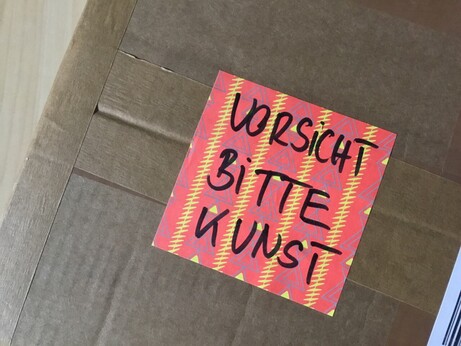 VORSiCHT
BiTTE
KUNST